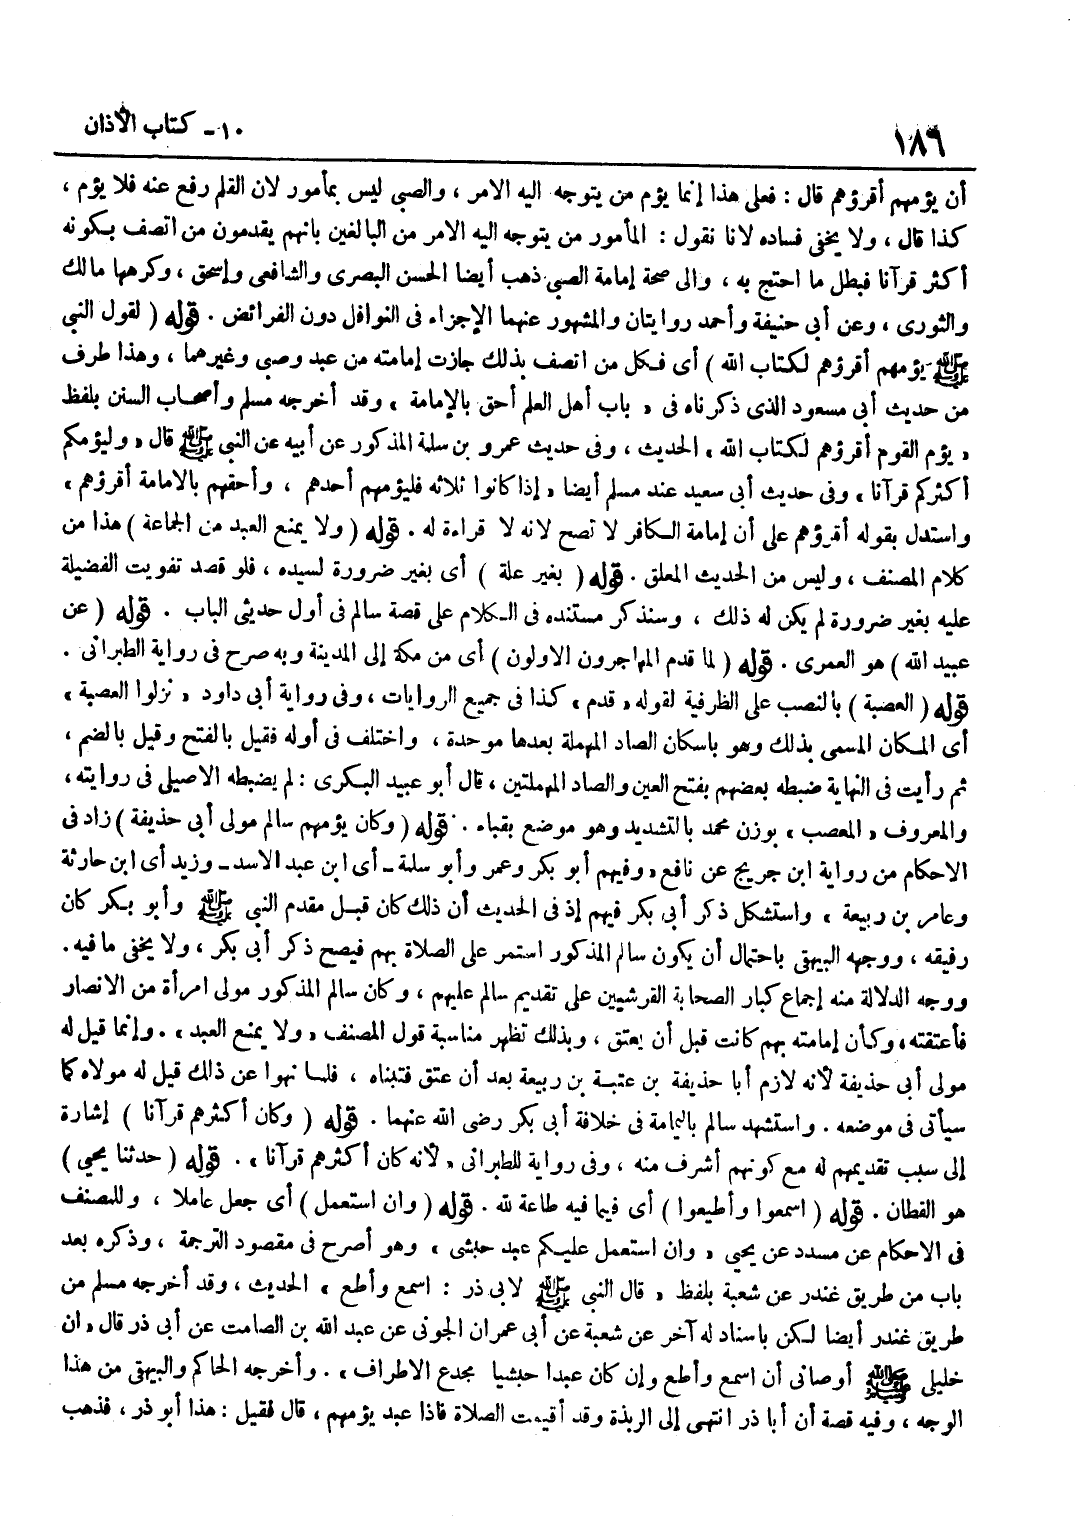 ١٨٦
١٠ - كتاب الأذان
أن يؤمهم أقرؤهم قال : فعلى هذا إنما يؤم من يتوجه اليه الامر ، والصبي ليس بمأمور لان القلم رفع عنه فلا يؤم ،
كذا قال ، ولا يخفى فساده لانا نقول : المأمور من يتوجه اليه الامر من البالغين بانهم يقدمون من اتصف بكونه
أكثر قرآنا فبطل ما احتج به ، والى صحة إمامة الصبي ذهب أيضا الحسن البصرى والشافعى وإسحق ، وكرهها مالك
والثورى ، وعن أبى حنيفة وأحمد روايتان والمشهور عنهما الإجزاء فى النوافل دون الفرائض . قوله ( لقول النبي
ﷺ يؤمهم أقرؤهم لكتاب الله ) أى فكل من اتصف بذلك جازت إمامته من عبد وصبى وغيرهما ، وهذا طرف
من حديث أبى مسعود الذى ذكرناه فى « باب أهل العلم أحق بالإمامة » وقد أخرجه مسلم وأصحاب السنن بلفظ
« يؤم القوم أقرؤهم لكتاب الله » الحديث ، وفى حديث عمرو بن سلمة المذكور عن أبيه عن النبي ﷺ قال « وليؤمكم
أكثركم قرآنا » وفى حديث أبى سعيد عند مسلم أيضا « إذا كانوا ثلاثه فليؤمهم أحدهم ، وأحقهم بالامامة أقرؤهم »
واستدل بقوله أقرؤهم على أن إمامة الكافر لا تصح لانه لا قراءة له . قوله ( ولا يمنع العبد من الجماعة ) هذا من
كلام المصنف ، وليس من الحديث المعلق . قوله ( بغير علة ) أى بغير ضرورة لسيده ، فلو قصد تفويت الفضيلة
عليه بغير ضرورة لم يكن له ذلك ، وسنذكر مستنده فى الكلام على قصة سالم فى أول حديثى الباب . قوله ( عن
عبيد الله ) هو العمرى . قوله ( لما قدم المهاجرون الاولون ) أى من مكة إلى المدينة وبه صرح فى رواية الطبرانى .
قوله ( العصبة ) بالنصب على الظرفية لقوله « قدم » كذا فى جميع الروايات ، وفى رواية أبى داود « نزلوا العصبة »
أى المكان المسمى بذلك وهو باسكان الصاد المهملة بعدها موحدة ، واختلف فى أوله فقيل بالفتح وقيل بالضم ،
ثم رأيت فى النهاية ضبطه بعضهم بفتح العين والصاد المهملتين ، قال أبو عبيد البكرى : لم يضبطه الاصيلى فى روايته ،
والمعروف « المعصب » بوزن محمد بالتشديد وهو موضع بقباء . قوله ( وكان يؤمهم سالم مولى أبى حذيفة ) زاد فى
الاحكام من رواية ابن جريج عن نافع « وفيهم أبو بكر وعمر وأبو سلمة ـ أى ابن عبد الاسد ـ وزيد أى ابن حارثة
وعامر بن ربيعة » واستشكل ذكر أبى بكر فيهم إذ فى الحديث أن ذلك كان قبل مقدم النبي ﷺ وأبو بكر كان
رفيقه ، ووجهه البيهقى باحتمال أن يكون سالم المذكور استمر على الصلاة بهم فيصح ذكر أبى بكر ، ولا يخفى ما فيه .
ووجه الدلالة منه إجماع كبار الصحابة القرشيين على تقديم سالم عليهم ، وكان سالم المذكور مولى امرأة من الانصار
فأعتقته ، وكأن إمامته بهم كانت قبل أن يعتق ، وبذلك تظهر مناسبة قول المصنف « ولا يمنع العبد » . وإنما قيل له
مولى أبى حذيفة لأنه لازم أبا حذيفة بن عتبة بن ربيعة بعد أن عتق فتبناه ، فلما نهوا عن ذلك قيل له مولاه كما
سيأتى فى موضعه . واستشهد سالم باليمامة فى خلافة أبى بكر رضى الله عنهما . قوله ( وكان أكثرهم قرآنا ) إشارة
إلى سبب تقديمهم له مع كونهم أشرف منه ، وفى رواية للطبرانى « لأنه كان أكثرهم قرآنا » . قوله ( حدثنا يحيى )
هو القطان . قوله ( اسمعوا وأطيعوا ) أى فيما فيه طاعة لله . قوله ( وان استعمل ) أى جعل عاملا ، وللمصنف
فى الاحكام عن مسدد عن يحيى « وان استعمل عليكم عبد حبشى » وهو أصرح فى مقصود الترجمة ، وذكره بعد
باب من طريق غندر عن شعبة بلفظ « قال النبي ﷺ لابى ذر : اسمع وأطع » الحديث ، وقد أخرجه مسلم من
طريق غندر أيضا لكن باسناد له آخر عن شعبة عن أبى عمران الجونى عن عبد الله بن الصامت عن أبى ذر قال « ان
خليلى ﷺ أوصانى أن اسمع وأطع وإن كان عبدا حبشيا مجدع الاطراف » . وأخرجه الحاكم والبيهقى من هذا
الوجه ، وفيه قصة أن أبا ذر انتهى إلى الربذة وقد أقيمت الصلاة فاذا عبد يؤمهم ، قال فقيل : هذا أبو ذر ، فذهب